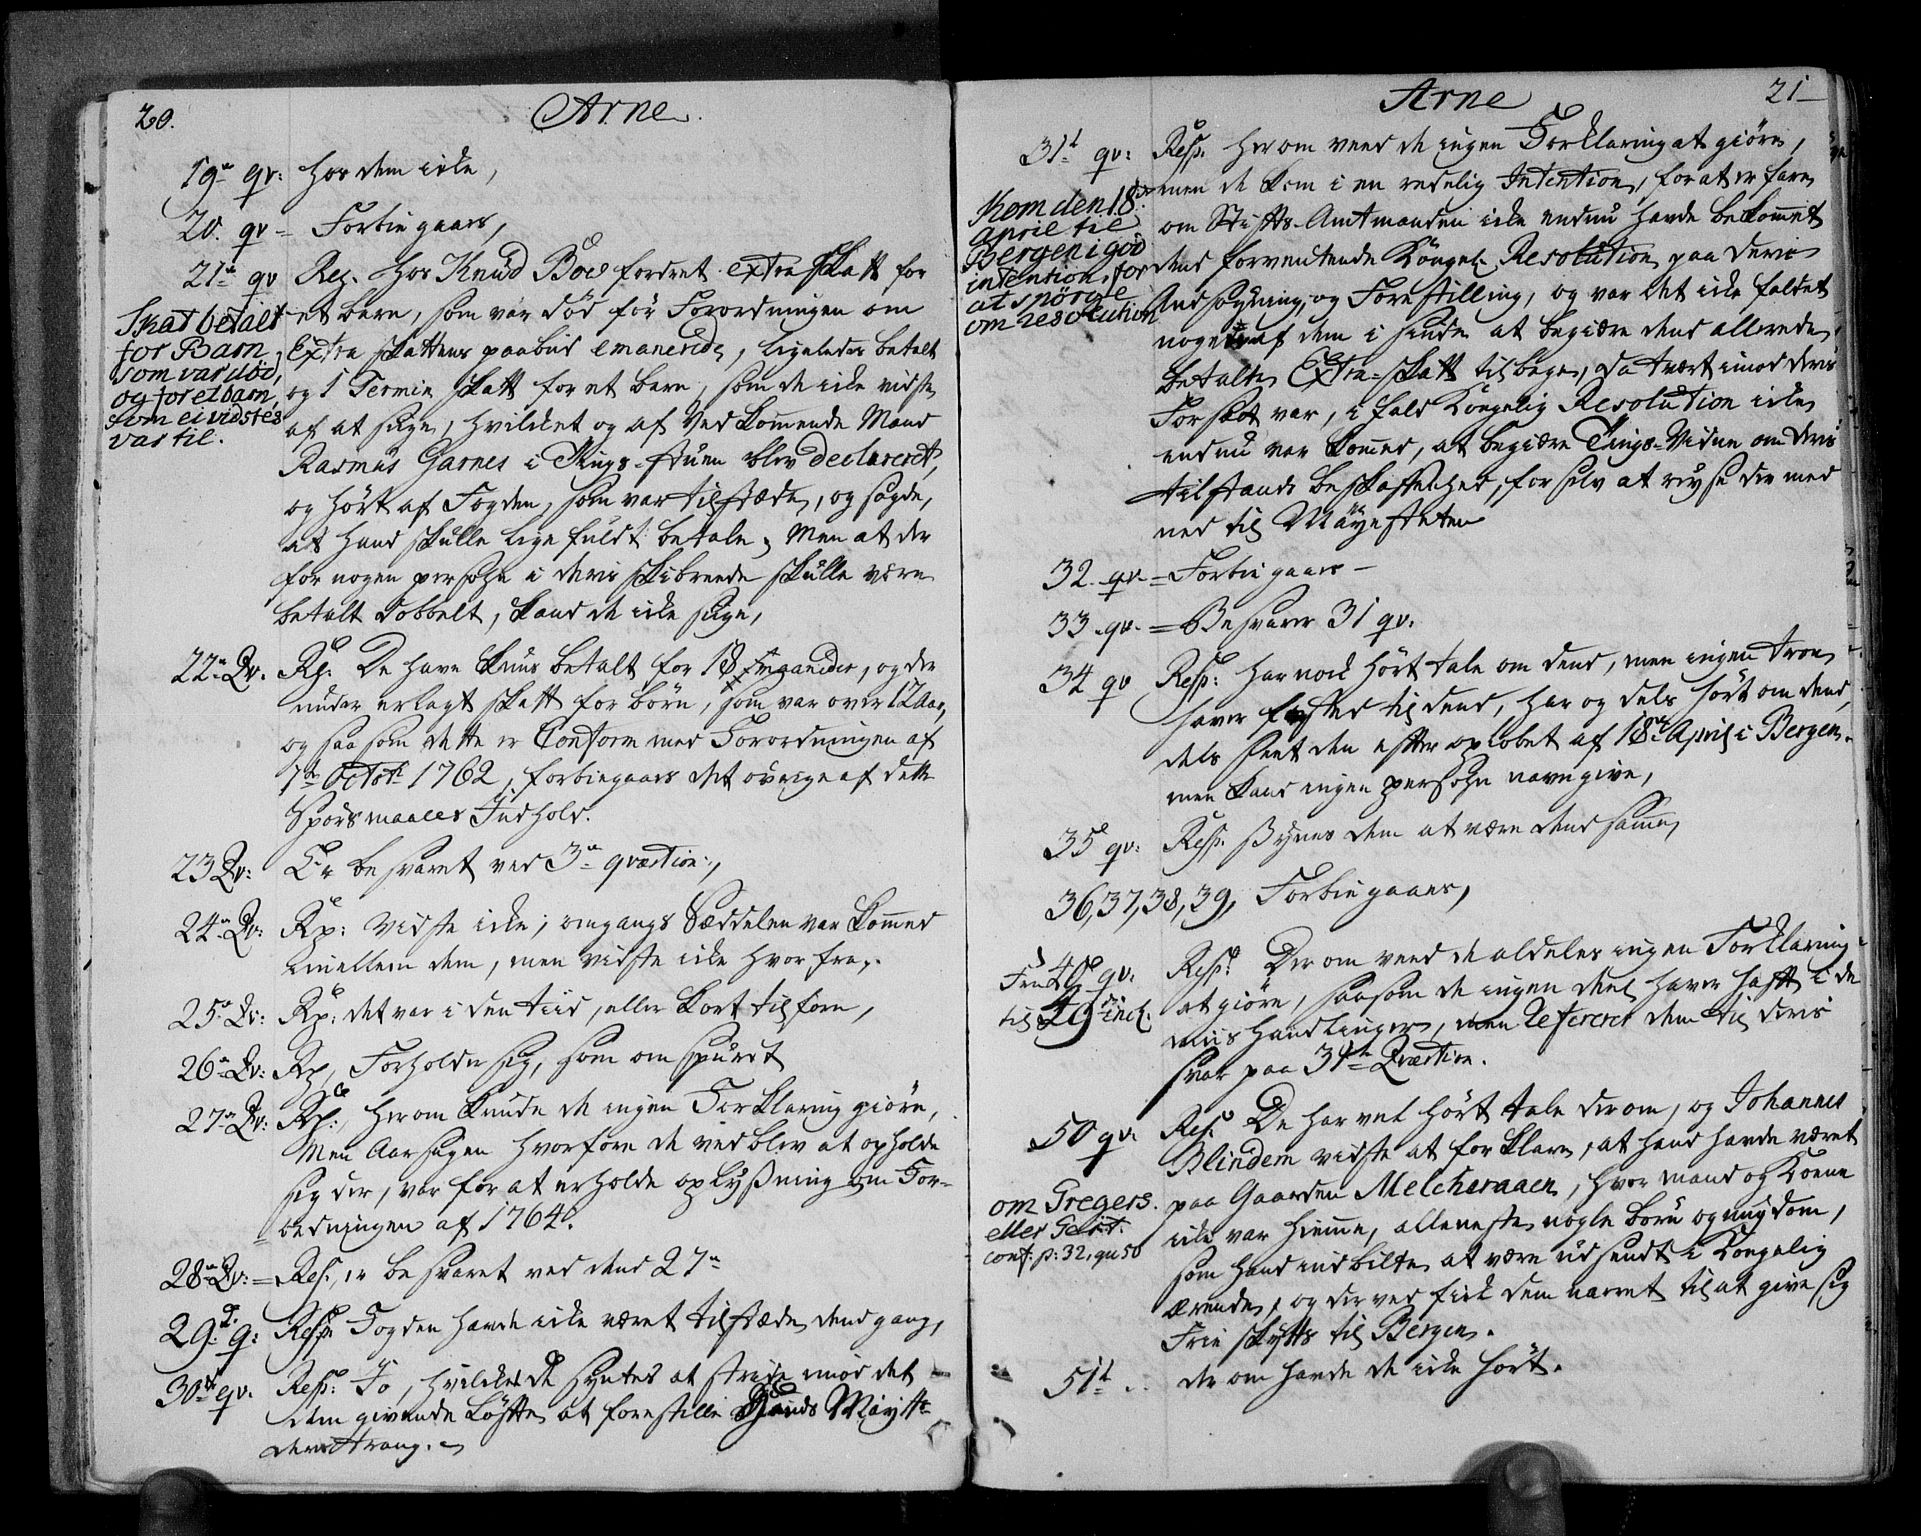 20.
Arne.
19de qv: hos dem icke,
20. qv = Forbiegaaes,
21de qv Res. hos Knud Boe fordret extra Skatt for
et barn, som var død før Forordningen om
Extra Skattens paabud emanerede, ligeledes betalt
og 1 Termin Skatt for et barn, som de icke vidste
af at sige, hvilcket og af Vedkommende Mand
Rasmus Garnes i Tings-stuen blev declareret,
og hört af Fogden, som var tilstæde, og sagde,
at hand skulle lige fuldt betale, Men at der
for nogen persohn i deris skibreede skulle være
betalt dobbelt, kand de icke sige,
Skat betalt
for Barn
som var död,
og for et barn,
som ei vidstes
var til.
22de Qv. Rp: De have kuns betalt for 18 , og der
under erlagt skatt for börn, som var over 12 Aar,
og saasom dette er Conform med Forordningen af
1de Octobr 1762, forbiegaaes det övrige af dette
Spörsmaales Indhold.
23 Qv: Er besvaret ved 3de qvæstion,
24de Qv: Rp: Vidste icke, omgangs Sæddelen var kommed
imellem dem, men vidste icke hvor fra,.
25de Qv: Rp: det var i den tiid, eller kort tilforn,
26de Qv: Rp, Forholder sig, som om spurdt
27de Qv: Rp:, herom kunde de ingen Forklaring giöre,
Men Aarsagen hvorfore de ved blev at opholde
sig der, var for at erholde oplysning om For-
ordningen af 1764.
28de Qv: = Res, er besvaret ved dend 27de
29. q: Resp Fogden havde icke været tilstæde dend gang,
30te qv. Resp: Jo, hvilcket de syntes at stride imod det
dem givende Löfte at forestille Hands Mayt
deres trang.
21
Arne
31t qv: Resp. herom veed de ingen Forklaring at giöre,
men de kom i en redelig Intention, for at erfare
om Stifts-Amtmanden icke endnu havde bekommet
dend forventende Kongel. Resolution paa deris
Ansögning, og Forestilling, og var det icke faldet
nogen af dem i sinde at begiære dend allerede
betalte Extra-skatt tilbage, da tvært imod deris
Forsæt var, i fald Kongelig Resolution icke
endnu var kommed, at begiære Tings-Vidne om deris
tilstands beskaffenhed, for selv at reyse der med
ned til Mäyesteten
Kom den 18de
april til
Bergen i god
intention, for
at spörge
om resolution
32. qv = Forbiegaaes -
33. qv. = Besvares 31 qv.
34 qv Resp: har nock hört tale om dend, men ingen troe
haver fæsted til dend, har og dels hört om dend,
dels seet den efter oplöbet af 18de April i Bergen.
men kand ingen persohn navngive,
35 qv: Resp. synes dem at være dend samme,
36, 37, 38, 39, Forbiegaaes,
Fra 40 qv:
til 49de incl.
Resp. Der om veed de aldeles ingen Forklaring
at giöre, saasom de ingen deel haver haft i de
miis handlinger, men refererer dem til deris
svar paa 34de Qvæstion.
50 qv. Res. De har vel hört tale derom, og Johannes
Blindem vidste at forklare, at hand havde været
paa Gaarden Melcheraaen, hvor mand og Kone
icke var hieme, alleneste nogle börn og ungdom,
som hand indbildte at være udsendt i Kongelig
ærende, og der ved fick dem narret til at give sig
Frie skyts til Bergen.
om Gregers.
eller Gert.
conf. p: 32, qu 50
51t .. der om havde de icke hört.